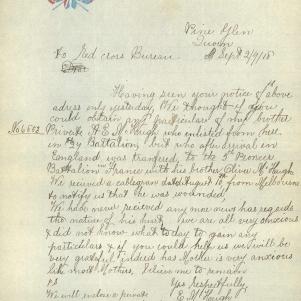 Pine Glen
Quorn
Sept 2/9/18
To Red cross Bureau
Having seen your notice of above
adress only yesterday, We thought if you
could obtain any particulars of my brother
No 6803 Private H E McHaugh who enlisted from here
in Battalion, but who after arrival in
England was transfered, to the 5th Pioneer
Battalion in France with his brother Clive McHaugh
We recived a cablegram dated August 10 from Melbourne
to notify us that he was wounded.
We have never recieved any more news has regards
the nature of his hurt We are all very anxious
& did not know what to day to gain any
particulars & if you could help us We will be
very grateful indeed has Mother is very anxious
like most Mothers, Believe me to remain
P.S Yrs Respectfully
We will enclose a private E McHaugh